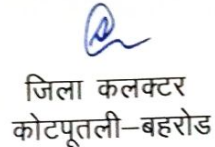 जिला कलक्टर
कोटपूतली–बहरोड